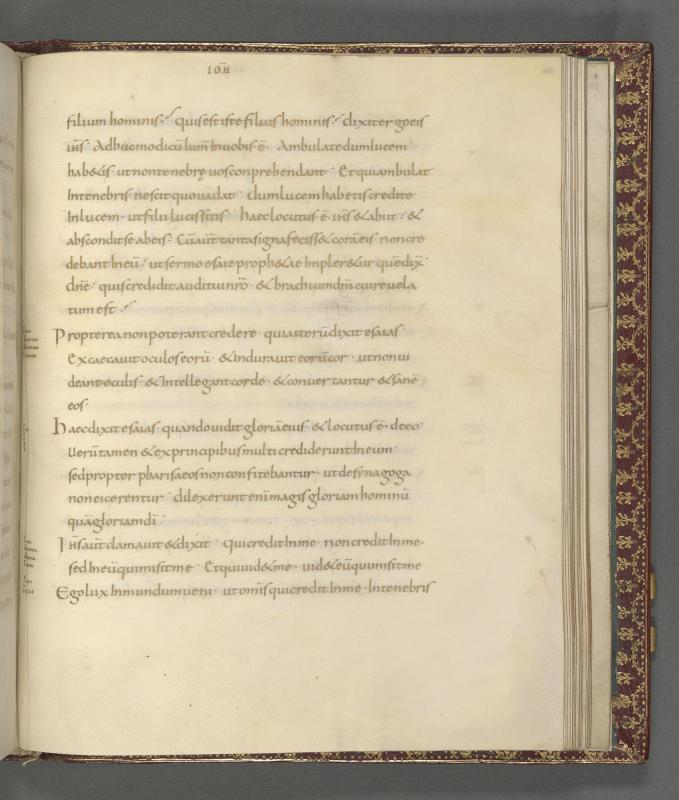 IOH̄
filium hominis· quis est iste filius hominis· dixit ergo eis
ih̄s Adhuc modicū lum̄ In uobis ē· Ambulate dum lucem
habetis· ut non tenebrę uos conprehendant· Et qui ambulat
In tenebris nescit quo uadat· dum lucem habetis credite
In lucem· ut filii lucis sitis· haec locutus ē· ih̄s & abiit· &
abscondit se ab eis· Cū aut̄ tanta signa feciss& corā eis non cre
debant In eū· ut sermo esaiae proph&ae Impler&ur quē dix̄·
dn̄e· quis credidit auditui nrō· & brachium dn̄i cui reuela
tum est·
Propterea non poterant credere· quia iterū dixit esaias
Excaecauit oculos eorū· & Indurauit eorū cor· ut non ui
deant oculis· & Intellegant corde· & conuertantur & sanē
eos·
haec dixit esaias· quando uidit gloriā eius· & locutus ē· de eo
Uerūtamen & ex principibus multi crediderunt In eum·
sed propter pharisaeos non confitebantur· ut de synagoga
non eicerentur· dilexerunt enī magis gloriam hominū
quā gloriam dī·
Ih̄s aut̄ clamauit & dixit· Qui credit In me· non credit In me·
sed In eū qui misit me· Et qui uid& me· uid& eū qui misit me
Ego lux In mundum ueni· ut omīs qui credit In me· In tenebris